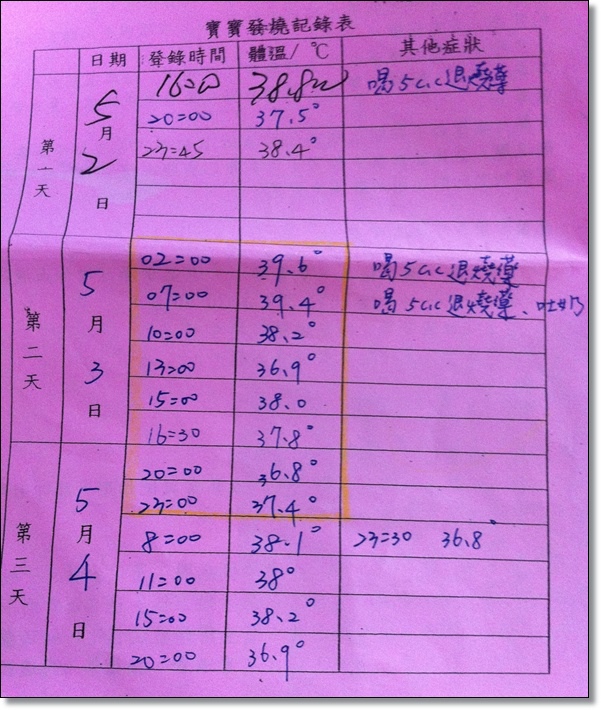 寶寶發燒記錄表
日期 登錄時間 體溫/ °C 其他症狀
第一天 5月2日
16:00 38.8 喝5cc退燒藥
20:00 37.5°
23:45 38.4°
第二天 5月3日
02:00 39.6° 喝5cc退燒藥
07:00 39.4° 喝5cc退燒藥、吐奶
10:00 38.2°
13:00 36.9°
15:00 38.0
16:30 37.8°
20:00 36.8°
23:00 37.4°
第三天 5月4日
8:00 38.1° 23:30 36.8°
11:00 38°
15:00 38.2°
20:00 36.9°